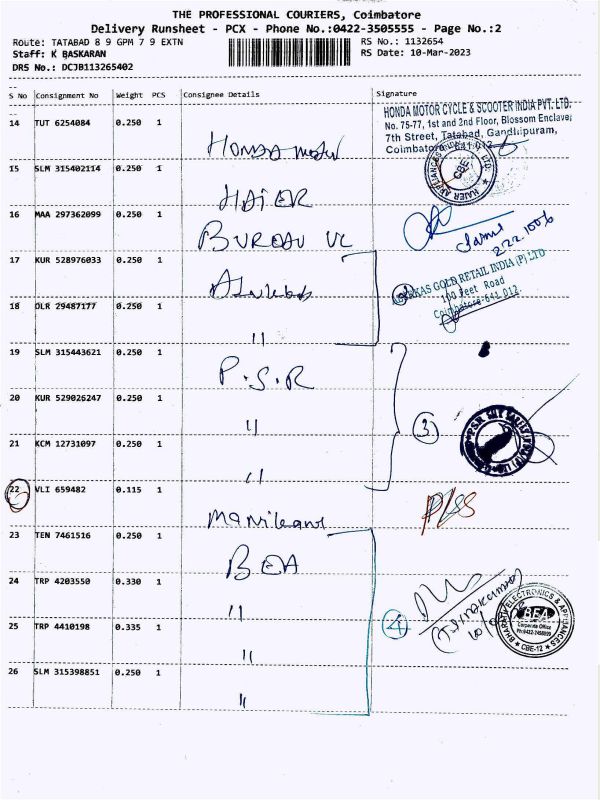 THE PROFESSIONAL COURIERS, Coimbatore
Delivery Runsheet - PCX - Phone No.:0422-3505555 - Page No.:2
Route: TATABAD 8 9 GPM 7 9 EXTN
RS No.: 1132654
Staff: K BASKARAN
RS Date: 10-Mar-2023
DRS No.: DCJB113265402
S No Consignment No Weight PCS Consignee Details Signature
14 TUT 6254084 0.250 1
HONDA
HONDA MOTOR CYCLE & SCOOTER INDIA PVT. LTD.
No. 75-77, 1st and 2nd Floor, Blossom Enclave,
7th Street, Tatabad, Gandhipuram,
Coimbatore - 641 012
15 SLM 315402114 0.250 1
HAIER
HAIER APPLIANCES LTD.
CBE
16 MAA 297362099 0.250 1
BUREAU
17 KUR 528976033 0.250 1
GOLD RETAIL INDIA (P) LTD
100 Feet Road
Coimbatore-641 012.
18 DLR 29487177 0.250 1
"
19 SLM 315443621 0.250 1
P.S.R
20 KUR 529026247 0.250 1
"
3
21 KCM 12731097 0.250 1
"
22 VLI 659482 0.115 1
23 TEN 7461516 0.250 1
BEA
24 TRP 4203550 0.330 1
"
4
BHARATH ELECTRONICS & APPLIANCES
BEA
Corporate Office
CBE-12
25 TRP 4410198 0.335 1
"
26 SLM 315398851 0.250 1
"